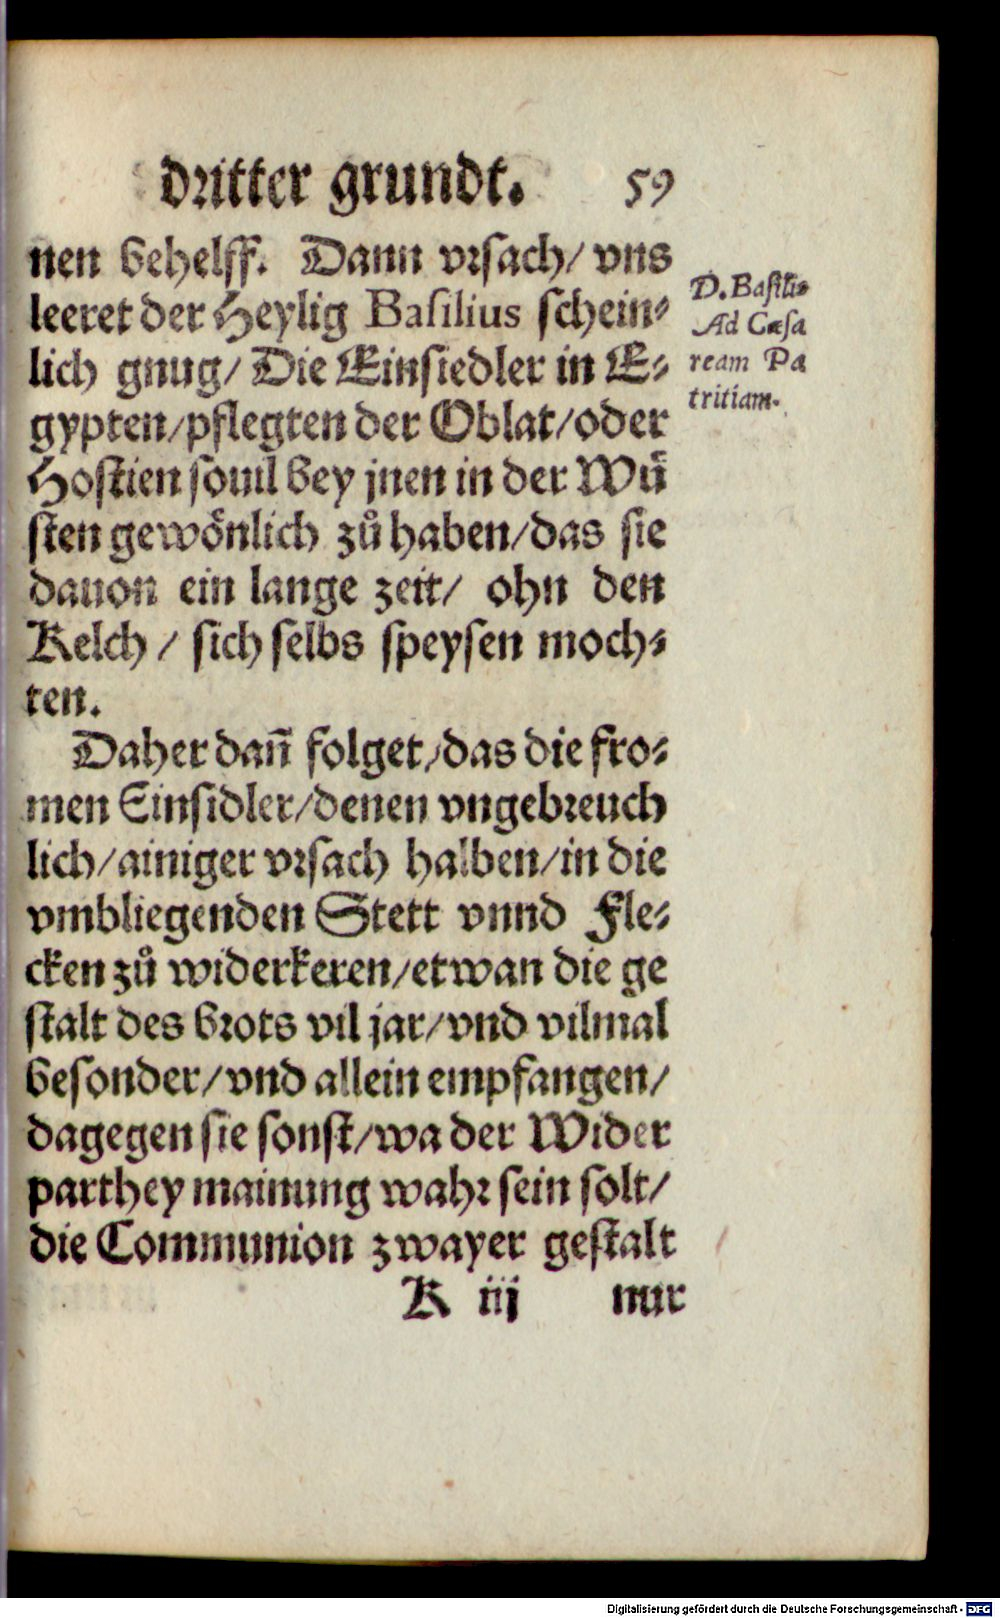 dritter grundt. 59
nen behelff. Dann vrsach/ vns
leeret der Heylig Basilius schein⸗
lich gnug/ Die Einsiedler in E⸗
gypten/pflegten der Oblat/oder
Hostien souil bey jnen in der Wuͤ
sten gewoͤnlich zuͦ haben/das sie
dauon ein lange zeit/ ohn den
Kelch / sich selbs speysen moch⸗
ten.
D. Basili⸗
Ad Cæsa
ream Pa
tritiam.
Daher dañ folget/das die fro⸗
men Einsidler/denen vngebreuch
lich/ainiger vrsach halben/in die
vmbliegenden Stett vnnd Fle⸗
cken zuͦ widerkeren/etwan die ge
stalt des brots vil jar/vnd vilmal
besonder/vnd allein empfangen/
dagegen sie sonst/wa der Wider
parthey mainung wahr sein solt/
die Communion zwayer gestalt
K iij nur
Digitalisierung gefördert durch die Deutsche Forschungsgemeinschaft - DFG